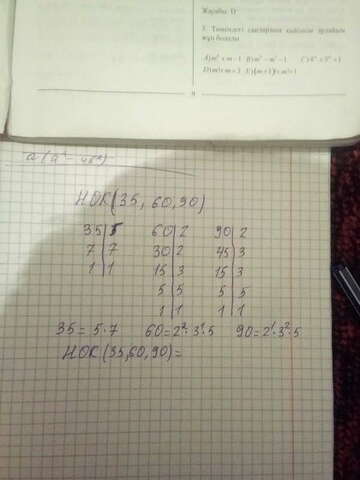 Жауабы: D
5. Төмендегі
жұп болады
A) m² + m - 1 B) m² - m² - 1
a (a² - 4b²)
НОК(35, 60, 90)
35|5 60|2 90|2
7|7 30|2 45|3
1|1 15|3 15|3
5|5 5|5
1|1 1|1
35 = 5·7 60=2²·3¹·5 90=2¹·3²·5
НОК(35,60,90)=